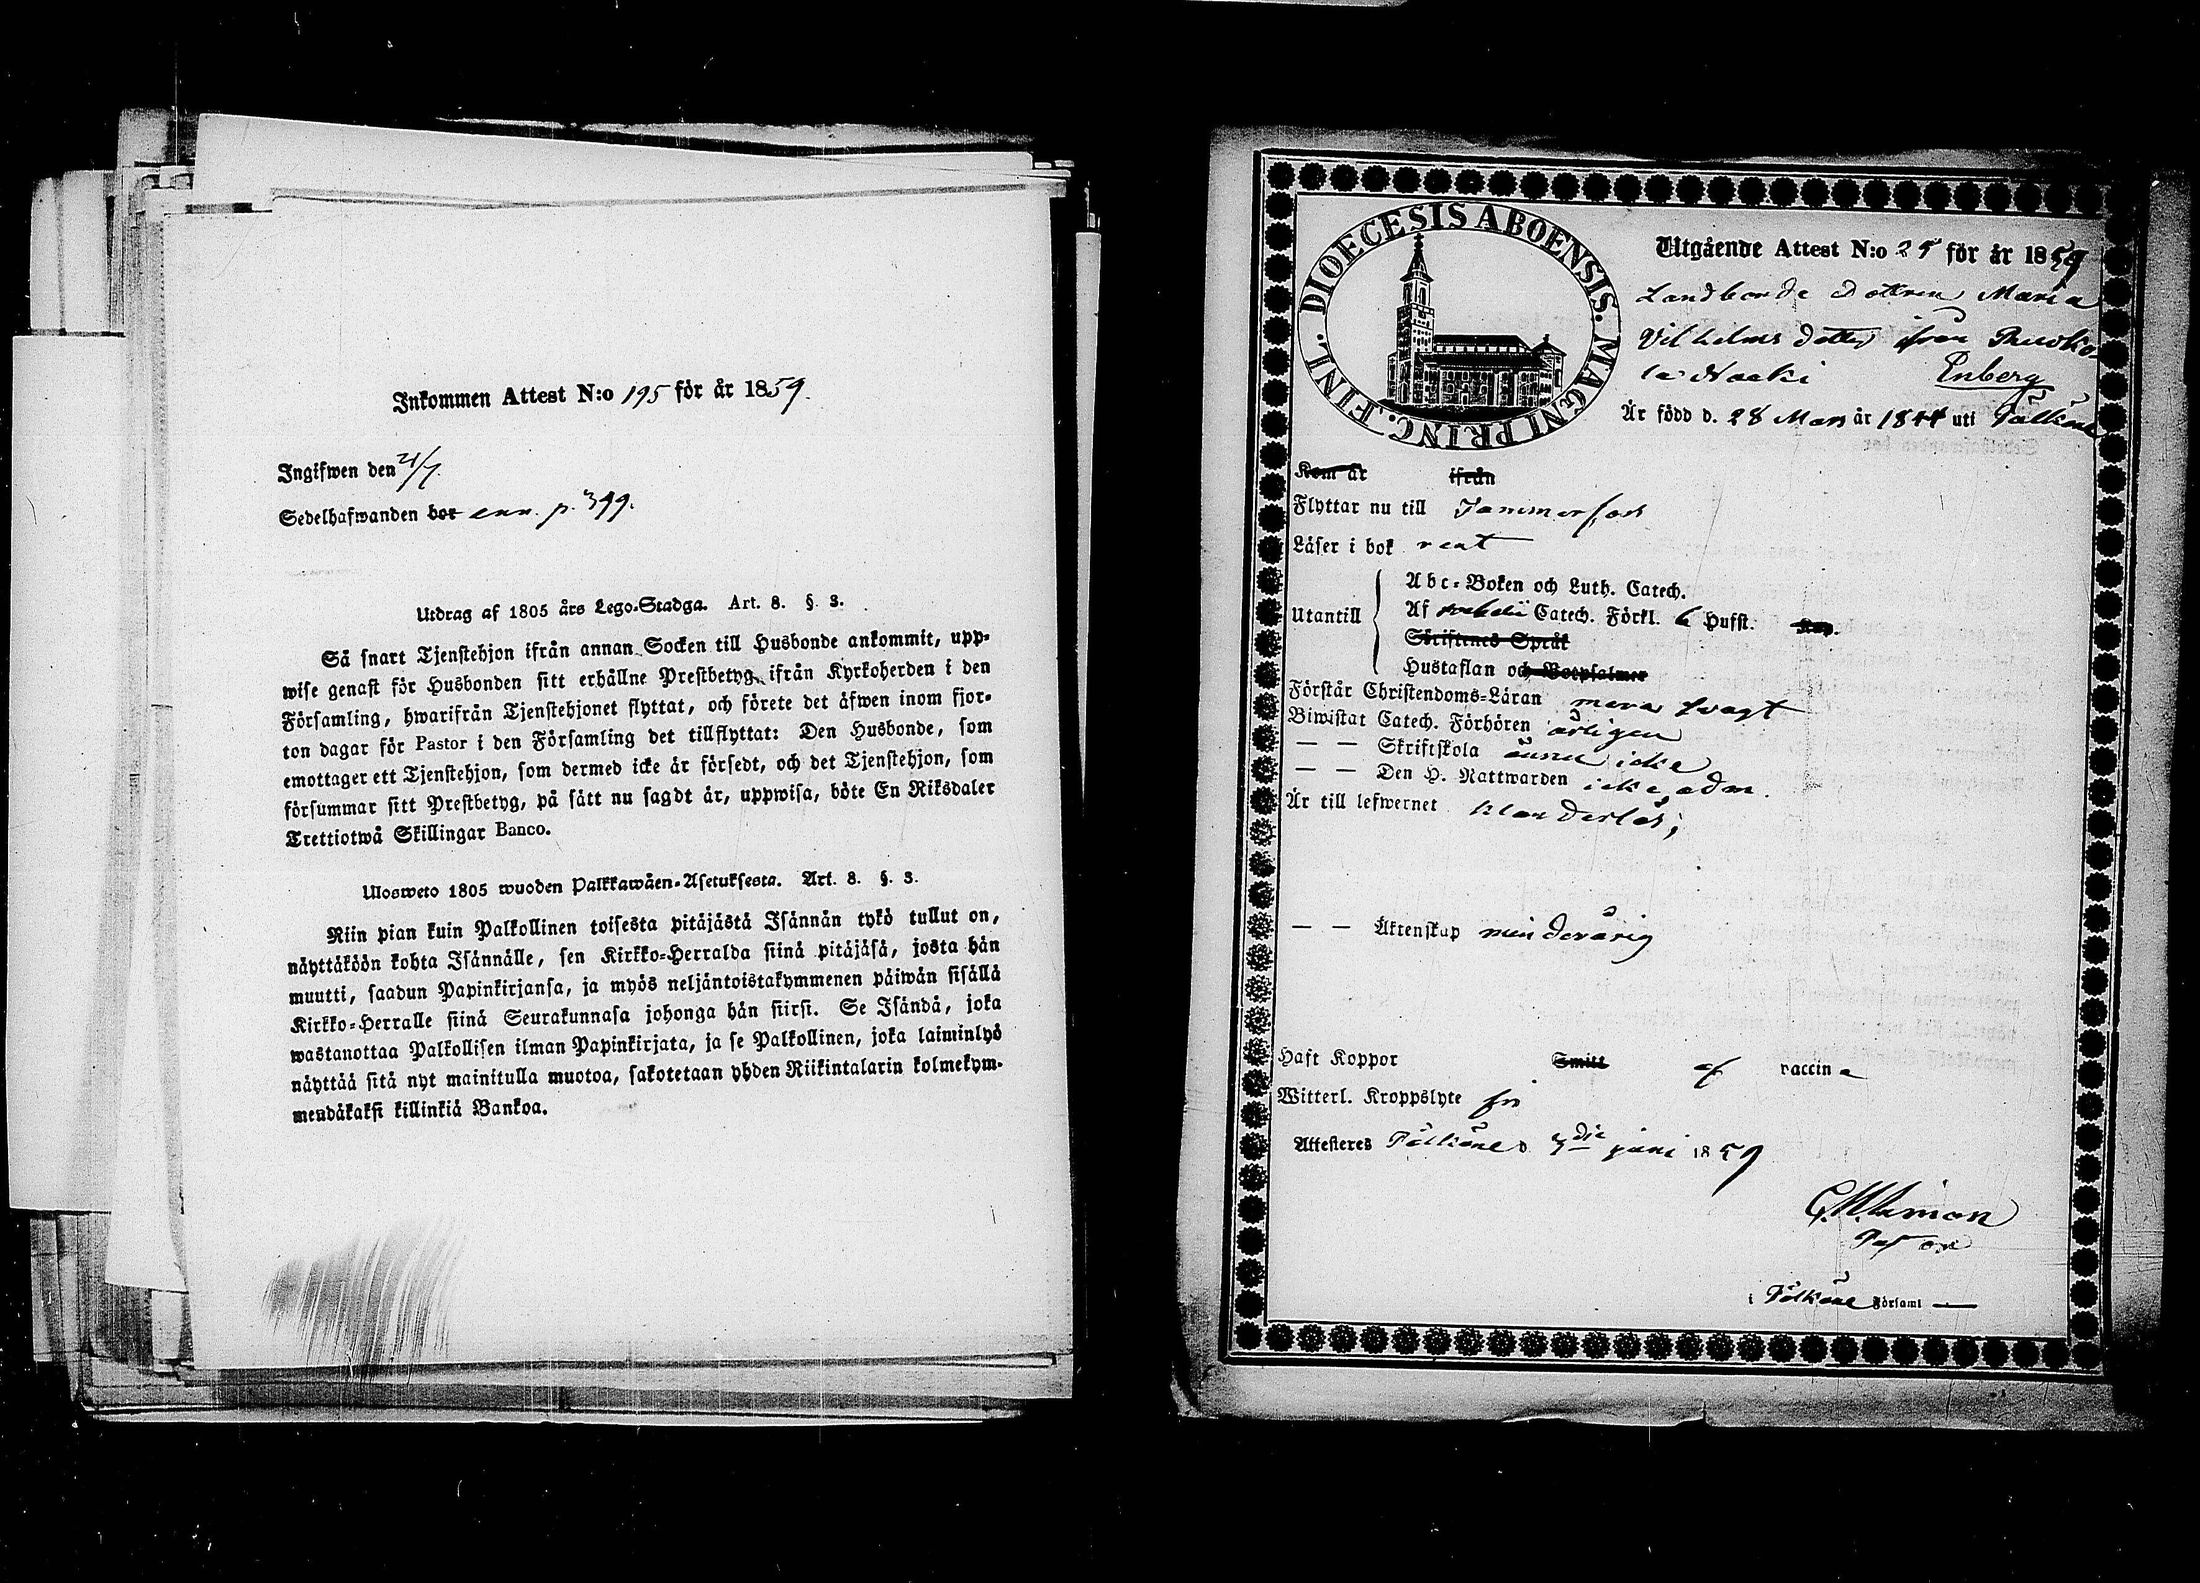 Inkommen Attest N:o 195 för år 1859.
Ingifwen den 21/7.
Sedelhafwanden bor enn. p. 399.
Utdrag af 1805 års Lego-Stadga. Art. 8. §. 3.
Så snart Tjenstehjon ifrån annan Socken till Husbonde ankommit, upp-
wise genast för Husbonden sitt erhållne Prestbetyg ifrån Kyrkoherden i den
Församling, hwarifrån Tjenstehjonet flyttat, och förete det äfwen inom fjor-
ton dagar för Pastor i den Församling det tillflyttat: Den Husbonde, som
emottager ett Tjenstehjon, som dermed icke är försedt, och det Tjenstehjon, som
försummar sitt Prestbetyg, på sätt nu sagdt är, uppwisa, böte En Riksdaler
Trettiotwå Skillingar Banco.
Ulosweto 1805 wuoden Palkkawäen-Asetuksesta. Art. 8. §. 3.
Niin pian kuin Palkollinen toisesta pitäjästä Isännän tykö tullut on,
näyttäköön kohta Isännälle, sen Kirkko-Herralda siinä pitäjäsä, josta hän
muutti, saadun Papinkirjansa, ja myös neljäntoistakymmenen päiwän sisällä
Kirkko-Herralle siinä Seurakunnasa johonga hän siirsi. Se Isändä, joka
wastanottaa Palkollisen ilman Papinkirjata, ja se Palkollinen, joka laiminlyö
näyttää sitä nyt mainitulla muotoa, sakotetaan yhden Riikintalarin kolmekym-
mendäkaksi killinkiä Bankoa.
DIOECESIS ABOENSIS. MAGNI PRINC. FINL.
Utgående Attest N:o 25 för år 1859
Landbonde dottren Maria
Vilhelms dotter ifrån
Enberg
Är född d. 28 Mars år 1844 uti Pälkäne
Kom år ifrån
Flyttar nu till Tammerfors
Läser i bok rent
Utantill
Abc-Boken och Luth. Catech.
Af Catech. Förkl. 6 Hufst.
Skriftenes Språk
Hustaflan och Botpsalmer
Förstår Christendoms-Läran mera svagt
Biwistat Catech. Förhören årligen
— — Skriftskola ännu icke
— — Den H. Nattwarden icke adm.
Är till lefwernet klanderlös;
— — Äktenskap minderårig
Haft Koppor Smitt af vaccine
Witterl. Kroppslyte fri
Attesteres Pälkäne d. 7 die juni 1859
Pastor
i Pälkäne Församl —